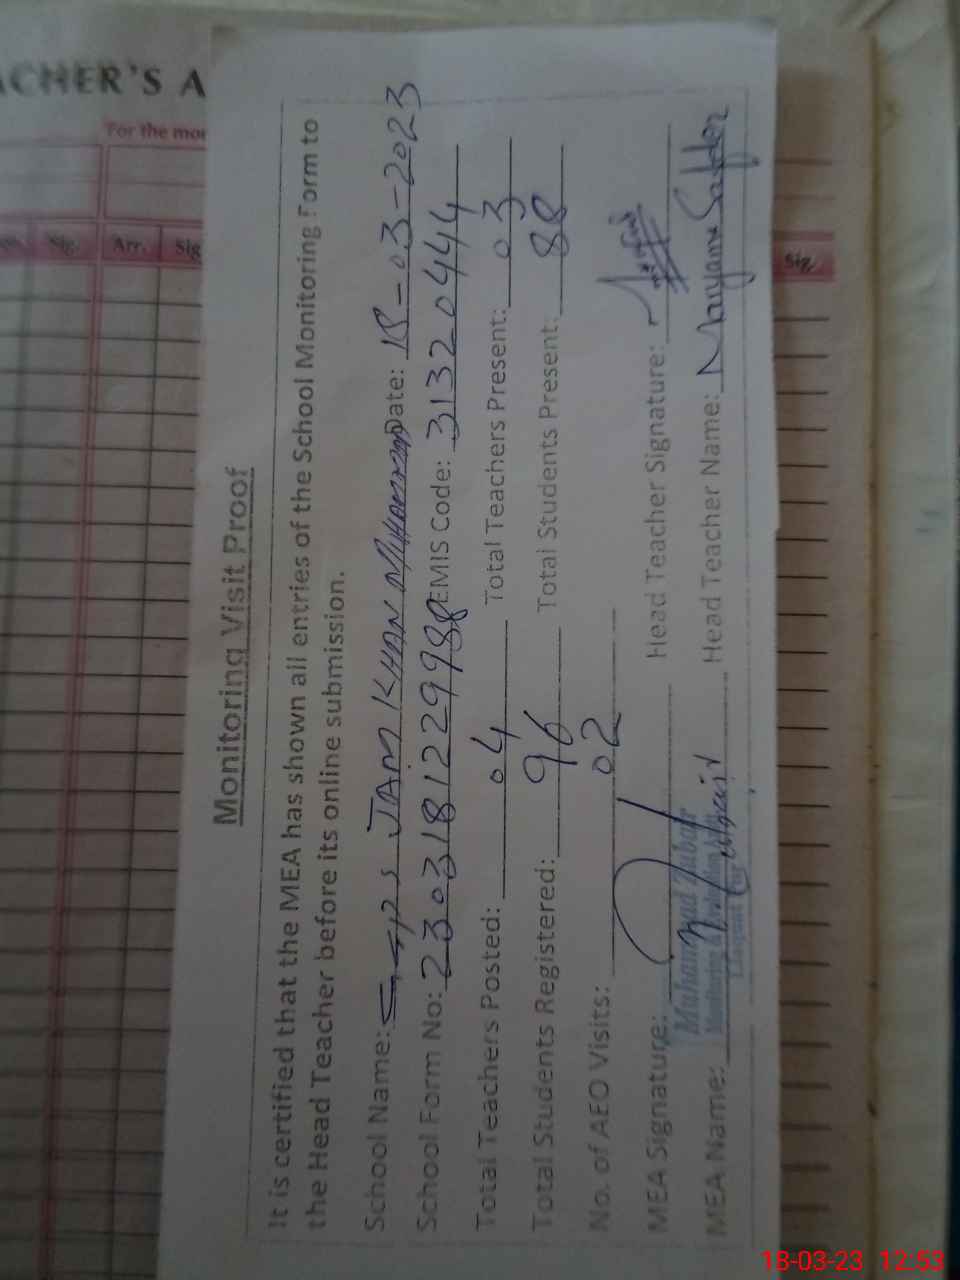 ACHER'S A
For the mor
Sig.
Arr.
Sig
Sig.
Monitoring Visit Proof
It is certified that the MEA has shown all entries of the School Monitoring Form to
the Head Teacher before its online submission.
School Name: GGPS JAM KHAN MUHAMMAD Date: 18-03-2023
School Form No: EMIS Code: 31320444
Total Teachers Posted: 04 Total Teachers Present: 03
Total Students Registered: 96 Total Students Present: 88
No. of AEO Visits: 02
MEA Signature: Head Teacher Signature:
Muhammad Zubair
Monitoring & Evaluation
MEA Name: M Zubair Head Teacher Name: Maryam Safder
18-03-23 12:53